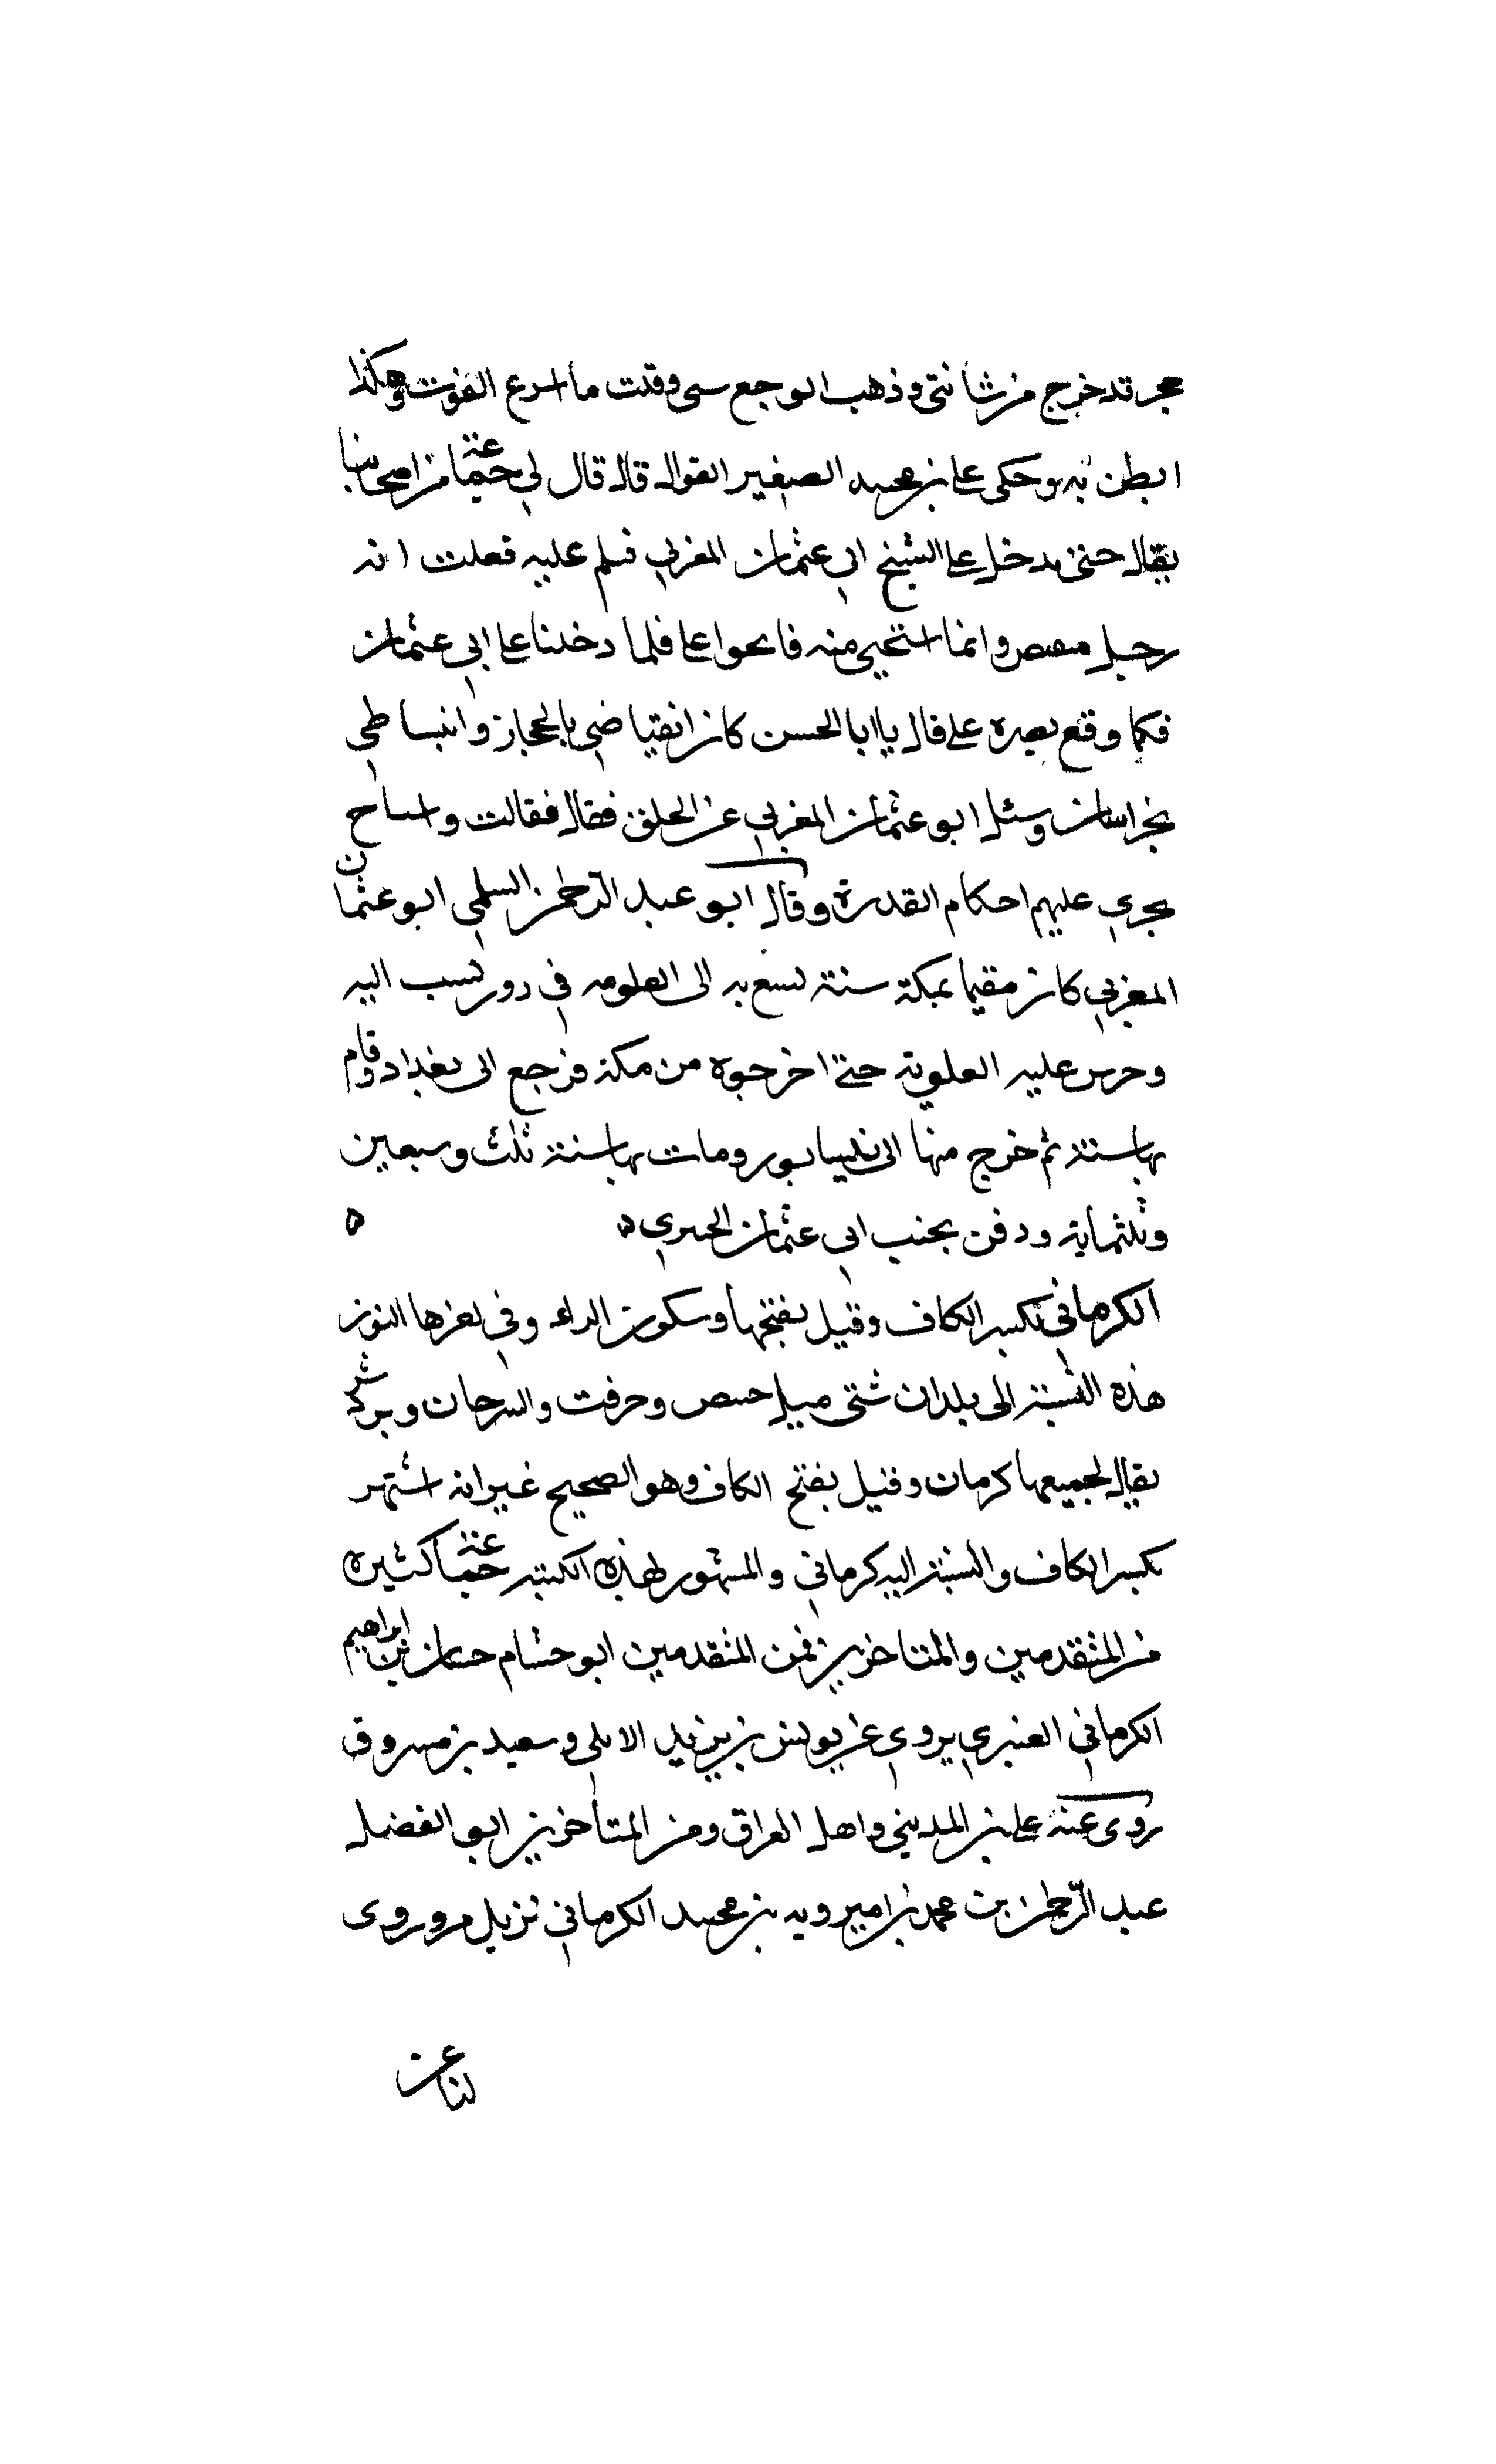 حجر قد خرج من مثانتي وذهب الوجع وقلت ما اسرع الغوث وهكذا
الظن به وحكى علي بن محمد الصغير القوال قال قال لي جماعة من اصحابنا
يقال حتى ندخل على الشيخ ابي عثمان المغربي فسلم عليه فقلت انه
رجل منقبض وانما استحيي منه فالحوا علي فلما دخلنا على ابي عثمان
فكما وقع بصره علي قال يا ابا الحسن كان انقباضي بالحجاز وانبساطي
بخراسان وسئل ابو عثمان المغربي عن الخلق فقال فقالت واشباح
يجري عليهم احكام القدرة وقال ابو عبد الرحمن السلمي ابو عثمان
المغربي كان مقيما بمكة سنة فسعي به الى العلوية في زور نسب اليه
وحرش عليه العلوية حتى اخرجوه من مكة فرجع الى بغداد وقام
بها سنة ثم خرج منها الى نيسابور ومات بها سنة ثلث وسبعين
وثلثماية ودفن بجنب ابي عثمان الحيري
الكرماني بكسر الكاف وقيل بفتحها وسكون الراء وفي اخرها النون
هذه النسبة الى بلدان شتى مثل خبيص وجيرفت والسرجان وبردشير
يقال لجميعها كرمان وقيل بفتح الكاف وهو الصحيح غير انه اشتهر
بكسر الكاف والنسبة اليه كرماني والمشهور بهذه النسبة جماعة كثيرة
من المتقدمين والمتاخرين فمن المتقدمين ابو هشام حسان بن ابراهيم
الكرماني العنبري يروي عن يونس بن يزيد الايلي وسعيد بن مسروق
روى عنه علي بن المديني واهل العراق ومن المتأخرين ابو الفضل
عبد الرحمن بن محمد بن اميرويه بن محمد الكرماني نزيل مرو روى
لنا عن